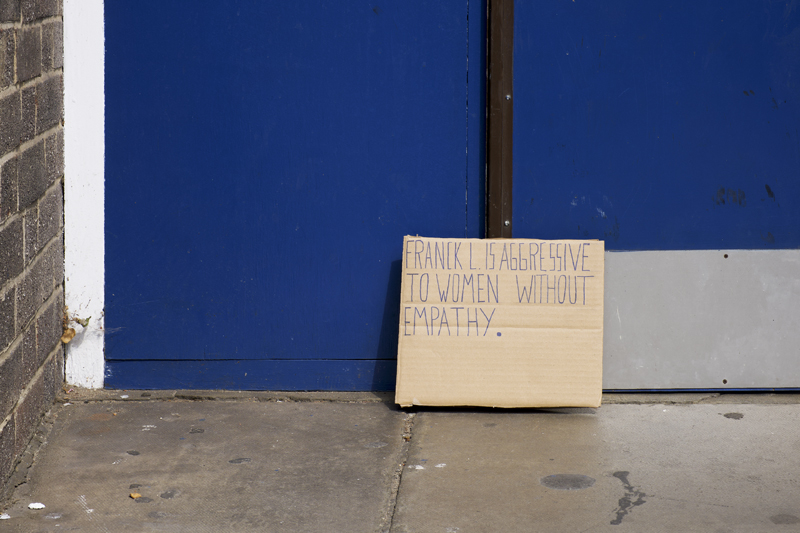 FRANCK L. IS AGGRESSIVE
TO WOMEN WITHOUT
EMPATHY.